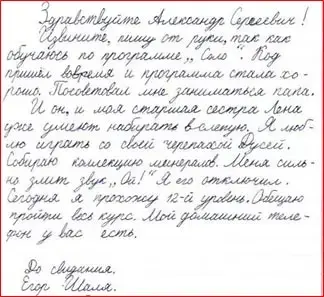 Здравствуйте Александр Сергеевич!
Извините, пишу от руки, так как
обучаюсь по программе „Соло". Код
пришёл вовремя и программа стала хо-
рошо. Посоветовал мне заниматься папа.
И он, и моя старшая сестра Лена
уже умеют набирать в слепую. Я люб-
лю играть со своей черепахой Дусей.
Собираю коллекцию минералов. Меня силь-
но злит звук „Ой!" Я его отключил.
Сегодня я прохожу 12-й уровень. Обещаю
пройти весь курс. Мой домашний теле-
фон у вас есть.
До свидания.
Егор Шаля.